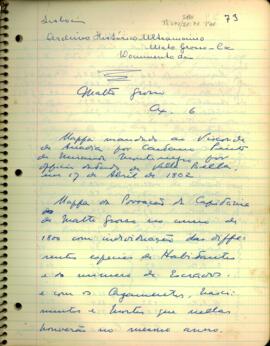 73
Lisboa
Archivo Histórico Ultramarino
Mato Grosso - Cx
Documento da
Matto Grosso
Cx. 6
Mappa mandado ao Visconde
de Anadia por Caetano Pinto
de Miranda Montenegro, por
officio datado de Villa Bella,
em 17 de Abril de 1802
Mappa da Povoação da Capitania
de Matto Grosso no anno de
1800 com individuação das diffe-
rentes especies de Habitantes
e os numeros de Escravos
e com os Cazamentos, Nasci-
mentos e Mortes que nellas
houverão no mesmo anno.